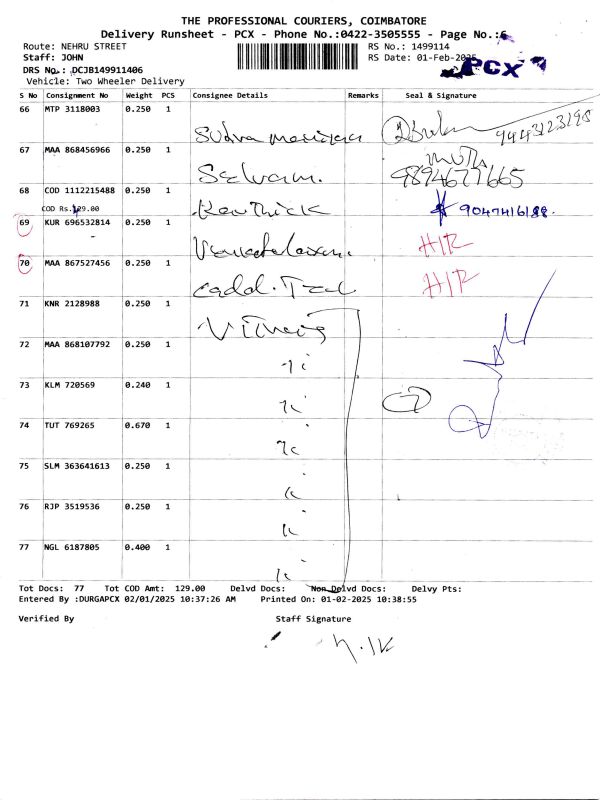 THE PROFESSIONAL COURIERS, COIMBATORE
Delivery Runsheet - PCX - Phone No.:0422-3505555 - Page No.:6
Route: NEHRU STREET
RS No.: 1499114
Staff: JOHN
RS Date: 01-Feb-2025
PCX
DRS No.: DCJB149911406
Vehicle: Two Wheeler Delivery
S No Consignment No Weight PCS Consignee Details Remarks Seal & Signature
66 MTP 3118003 0.250 1
67 MAA 868456966 0.250 1
Selvam. 9894677665
68 COD 1112215488 0.250 1
COD Rs.129.00
Karthick 9047416188.
69 KUR 696532814 0.250 1
HIR
70 MAA 867527456 0.250 1
HIR
71 KNR 2128988 0.250 1
72 MAA 868107792 0.250 1
73 KLM 720569 0.240 1
7
74 TUT 769265 0.670 1
75 SLM 363641613 0.250 1
76 RJP 3519536 0.250 1
77 NGL 6187805 0.400 1
Tot Docs: 77 Tot COD Amt: 129.00 Delvd Docs: Non Delvd Docs: Delvy Pts:
Entered By :DURGAPCX 02/01/2025 10:37:26 AM Printed On: 01-02-2025 10:38:55
Verified By Staff Signature